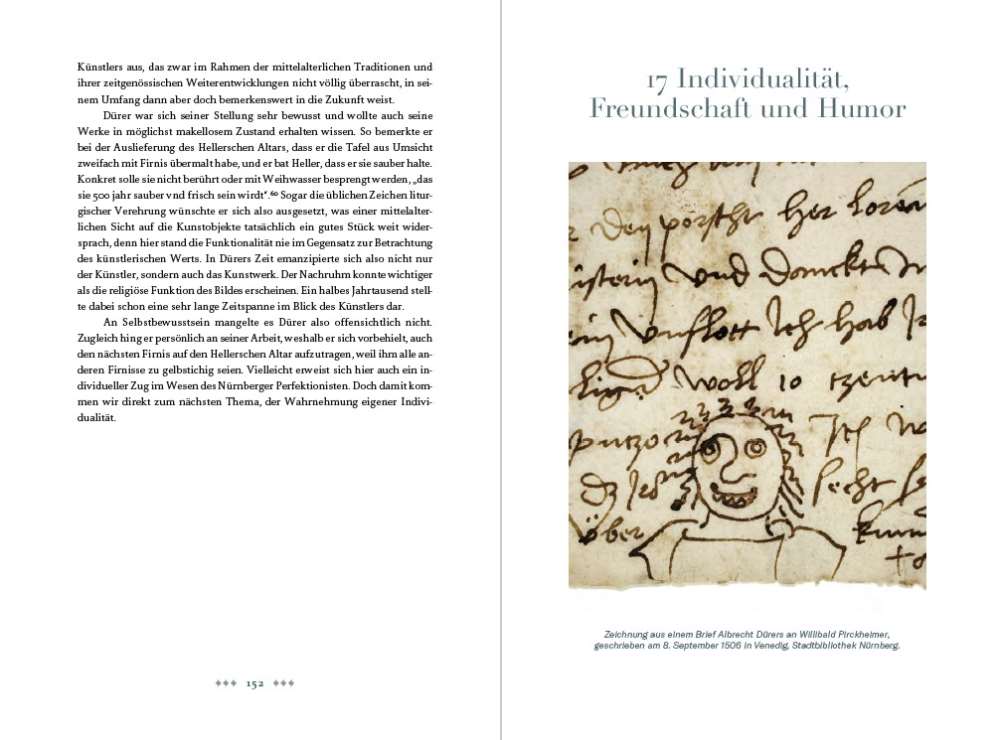 Künstlers aus, das zwar im Rahmen der mittelalterlichen Traditionen und
ihrer zeitgenössischen Weiterentwicklungen nicht völlig überrascht, in sei-
nem Umfang dann aber doch bemerkenswert in die Zukunft weist.
Dürer war sich seiner Stellung sehr bewusst und wollte auch seine
Werke in möglichst makellosem Zustand erhalten wissen. So bemerkte er
bei der Auslieferung des Hellerschen Altars, dass er die Tafel aus Umsicht
zweifach mit Firnis übermalt habe, und er bat Heller, dass er sie sauber halte.
Konkret solle sie nicht berührt oder mit Weihwasser besprengt werden, „das
sie 500 jahr sauber vnd frisch sein wirdt“.⁶⁰ Sogar die üblichen Zeichen litur-
gischer Verehrung wünschte er sich also ausgesetzt, was einer mittelalter-
lichen Sicht auf die Kunstobjekte tatsächlich ein gutes Stück weit wider-
sprach, denn hier stand die Funktionalität nie im Gegensatz zur Betrachtung
des künstlerischen Werts. In Dürers Zeit emanzipierte sich also nicht nur
der Künstler, sondern auch das Kunstwerk. Der Nachruhm konnte wichtiger
als die religiöse Funktion des Bildes erscheinen. Ein halbes Jahrtausend stell-
te dabei schon eine sehr lange Zeitspanne im Blick des Künstlers dar.
An Selbstbewusstsein mangelte es Dürer also offensichtlich nicht.
Zugleich hing er persönlich an seiner Arbeit, weshalb er sich vorbehielt, auch
den nächsten Firnis auf den Hellerschen Altar aufzutragen, weil ihm alle an-
deren Firnisse zu gelbstichig seien. Vielleicht erweist sich hier auch ein in-
dividueller Zug im Wesen des Nürnberger Perfektionisten. Doch damit kom-
men wir direkt zum nächsten Thema, der Wahrnehmung eigener Indivi-
dualität.
152
17 Individualität,
Freundschaft und Humor
den porscht her loren
und danckt
Ich hab
woll 10
Ich
secht
über
Zeichnung aus einem Brief Albrecht Dürers an Willibald Pirckheimer,
geschrieben am 8. September 1506 in Venedig, Stadtbibliothek Nürnberg.